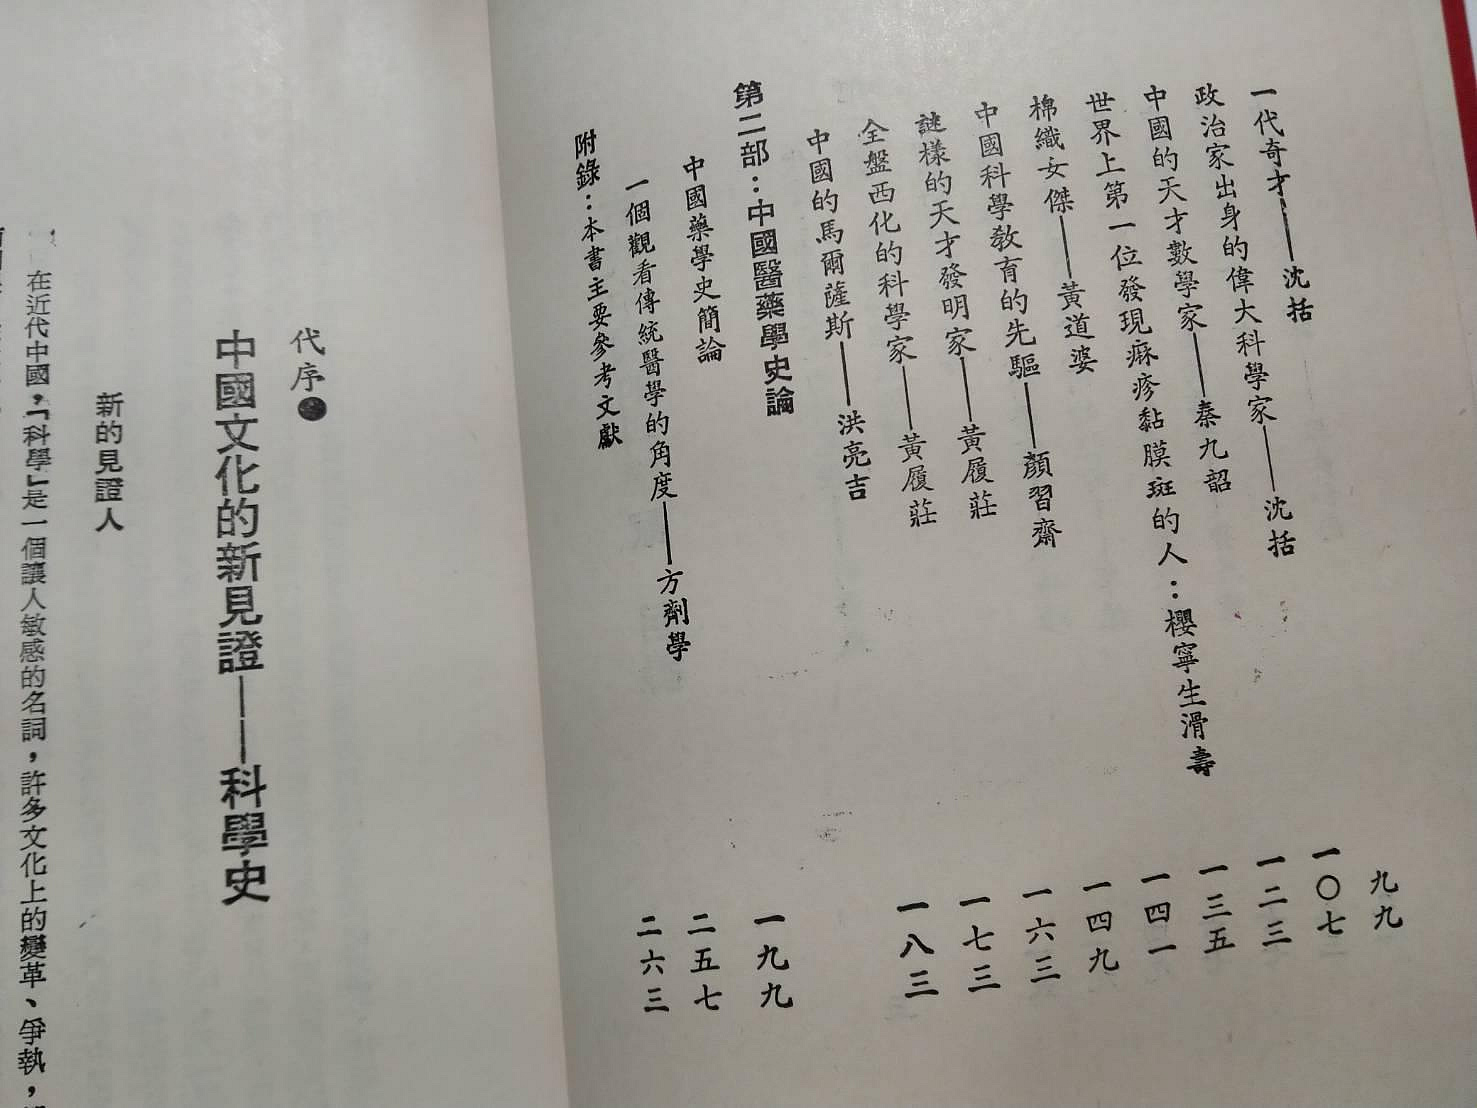 一代奇才——沈括
九九
政治家出身的偉大科學家——沈括
一〇七
中國的天才數學家——秦九韶
一二三
世界上第一位發現痳疹黏膜斑的人：櫻寧生滑壽
一三五
棉織女傑——黃道婆
一四一
中國科學教育的先驅——顏習齋
一四九
謎樣的天才發明家——黃履莊
一六三
全盤西化的科學家——黃履莊
一七三
中國的馬爾薩斯——洪亮吉
一八三
第二部：中國醫藥學史論
中國藥學史簡論
一九九
一個觀看傳統醫學的角度——方劑學
二五七
附錄：本書主要參考文獻
二六三
代序●
中國文化的新見證——科學史
新的見證人
在近代中國，「科學」是一個讓人敏感的名詞，許多文化上的變革、爭執，